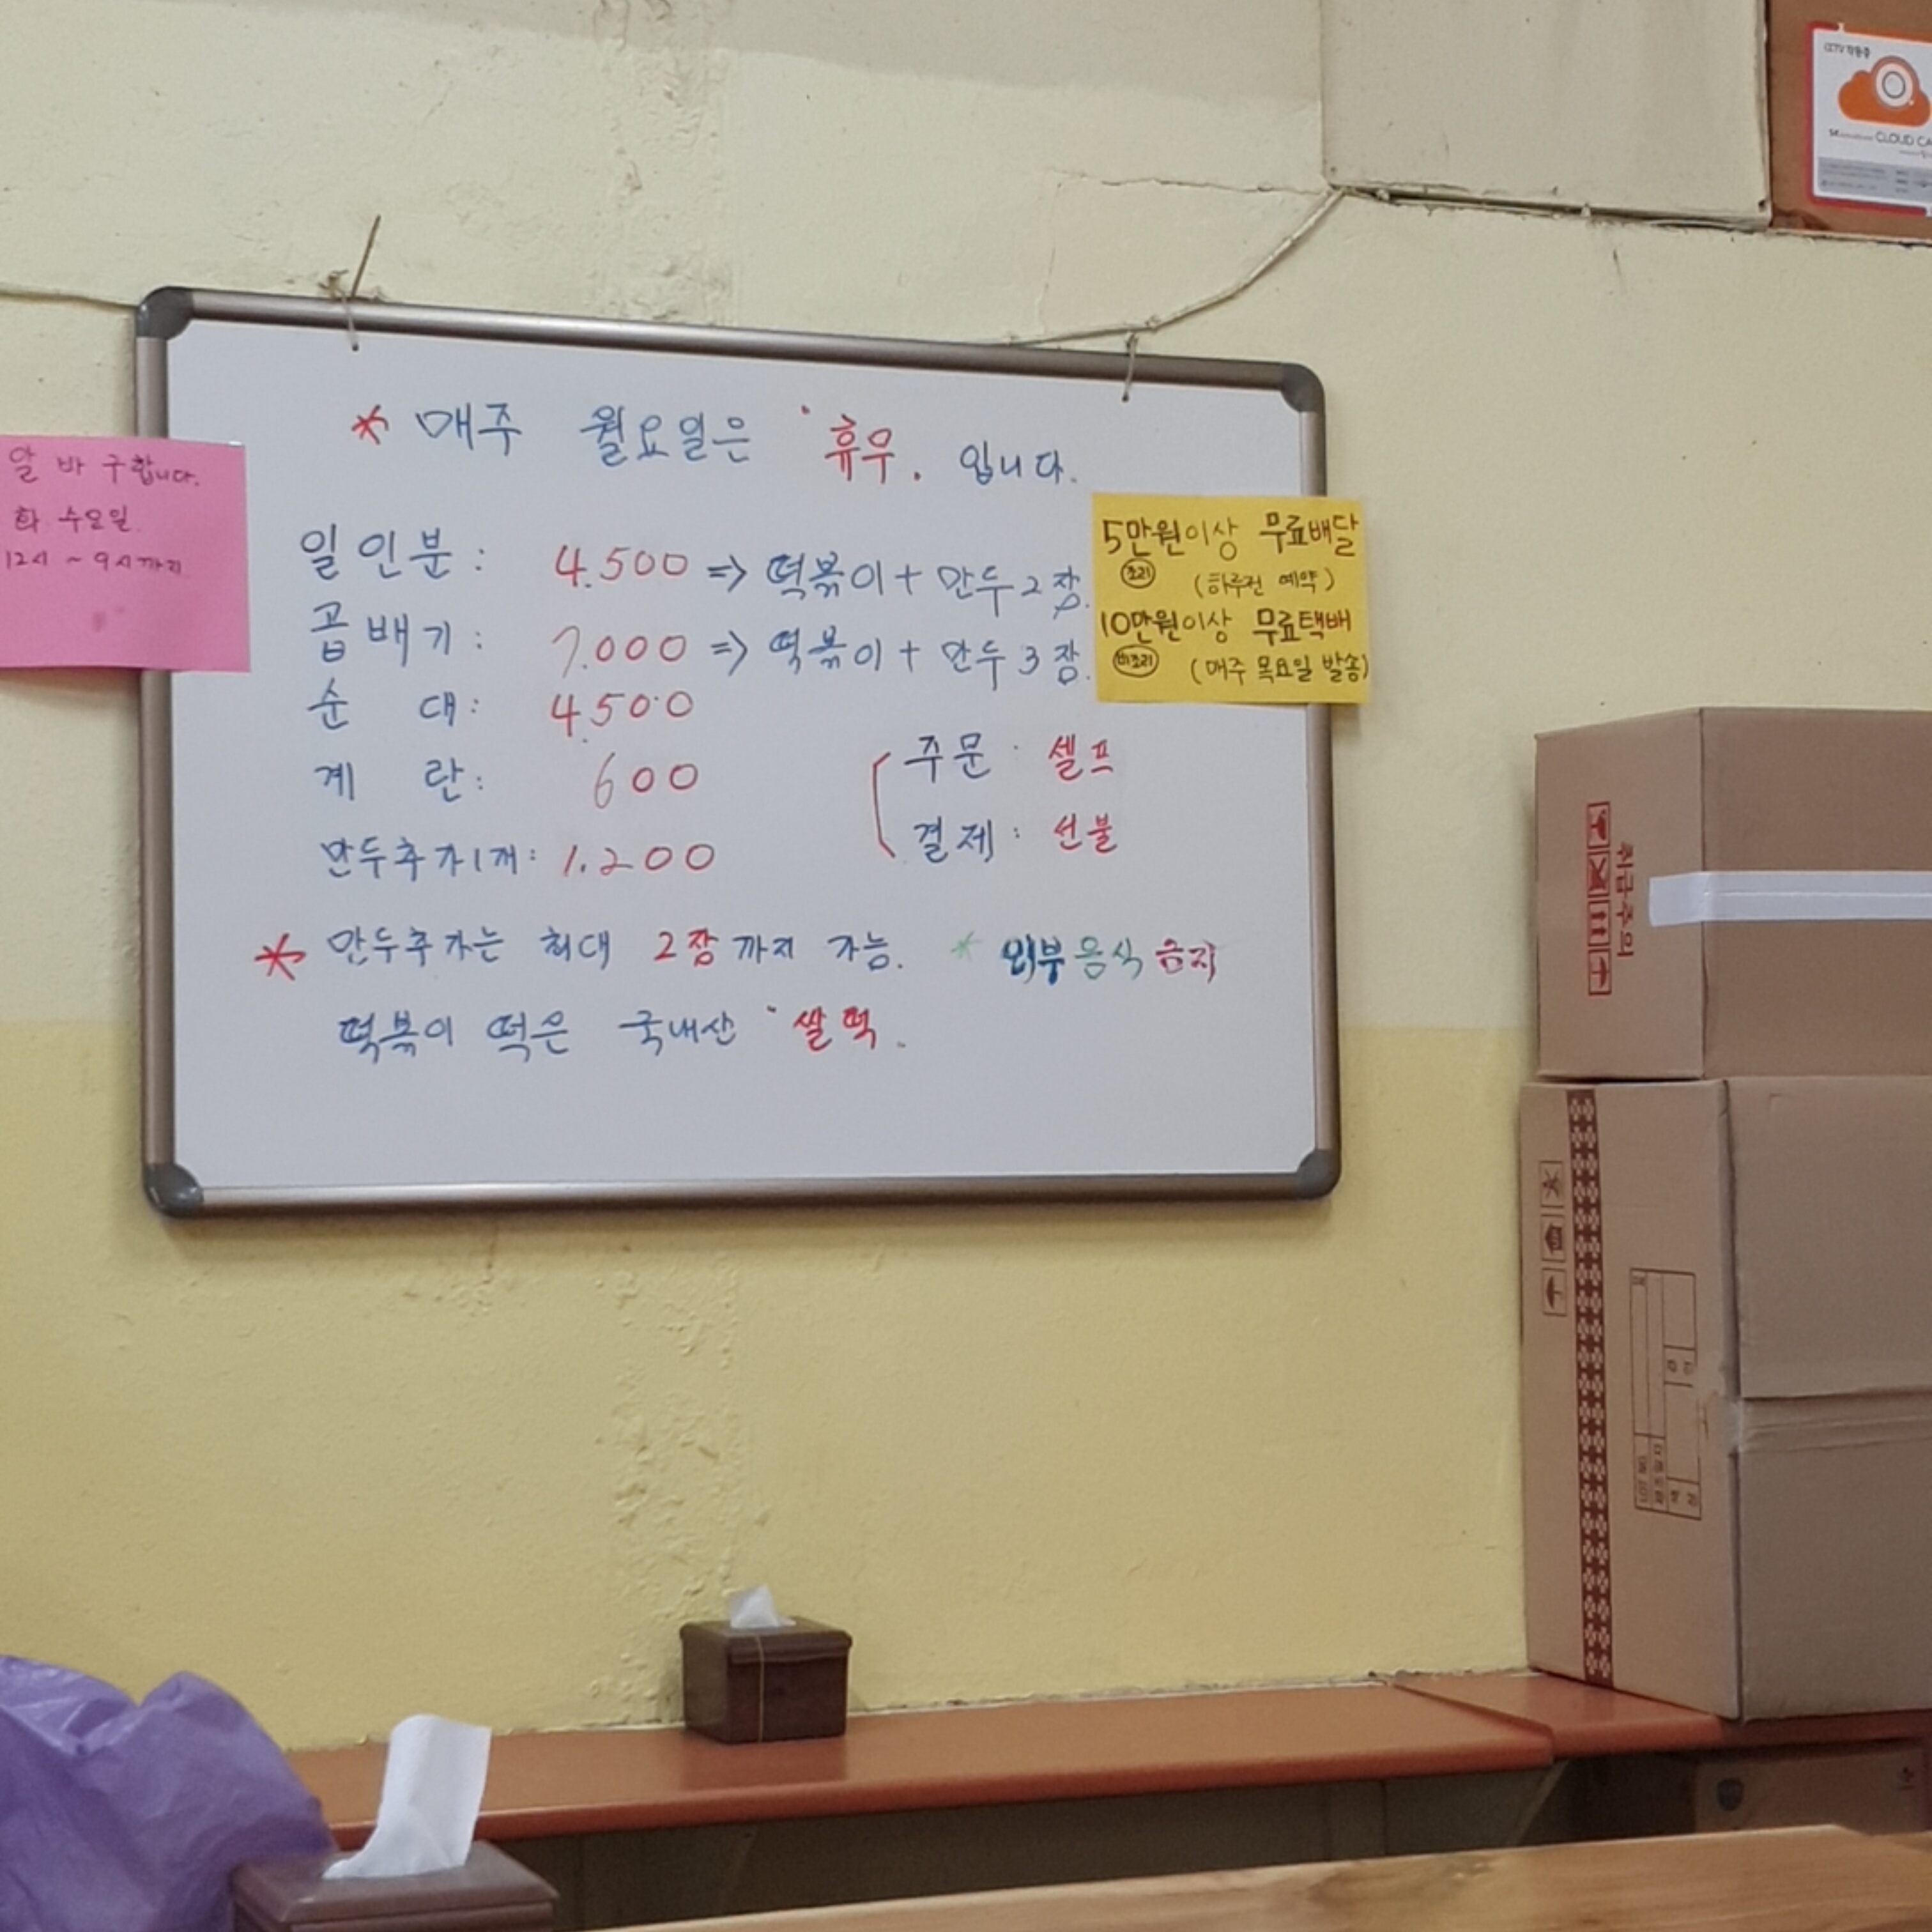 CCTV 작동중
CLOUD CA
* 매주 월요일은 "휴무. 입니다.
알바 구합니다.
화 수요일.
12시 ~ 9시까지.
일인분: 4.500 => 떡볶이 + 만두 2장.
곱배기: 7.000 => 떡볶이 + 만두 3장.
순 대: 4500
계 란: 600
만두추가1개: 1.200
5만원이상 무료배달
조리 (하루전 예약)
10만원이상 무료택배
비조리 (매주 목요일 발송)
주문: 셀프
결제: 선불
* 만두추가는 최대 2장까지 가능. * 외부음식 금지
떡볶이 떡은 국내산 "쌀떡.
취급주의
LOT NO.